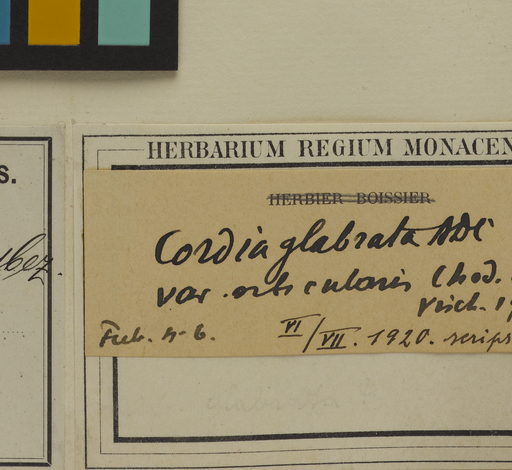 S.
bez.
HERBARIUM REGIUM MONACEN
HERBIER BOISSIER
Cordia glabrata ADC
var. orbicularis Chod.
Visch. 19
Fieb. n. 6.
VI/VII. 1920. scrips